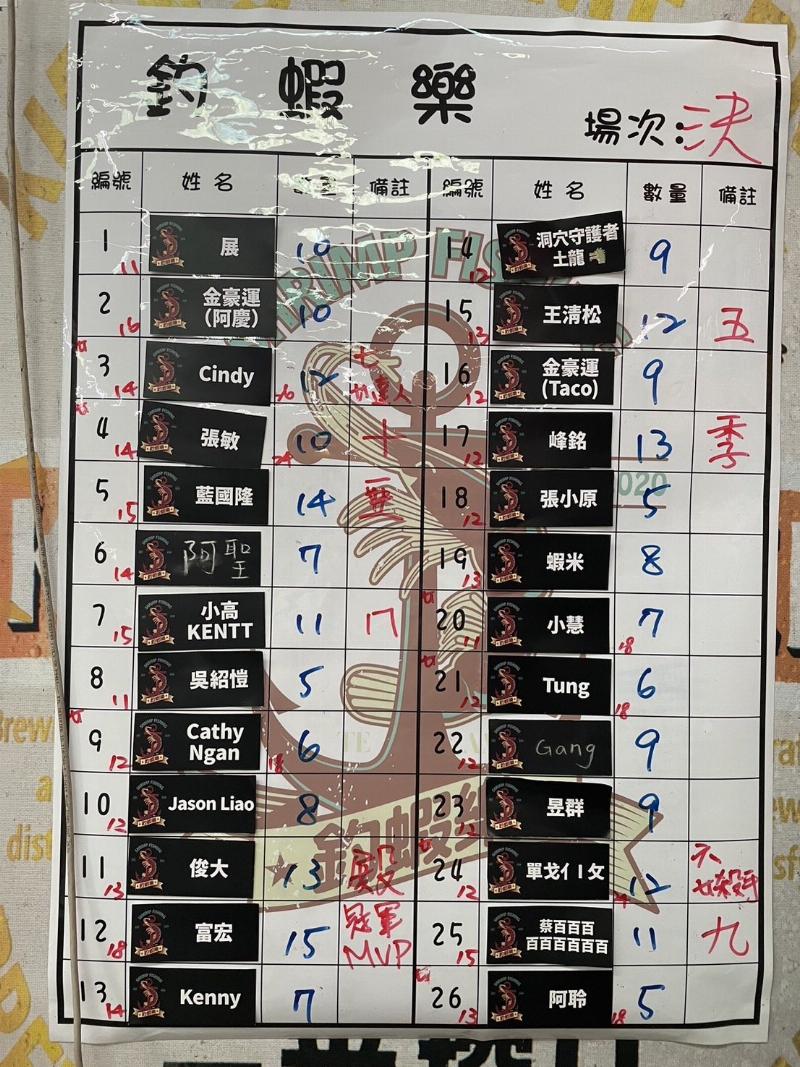 釣 蝦 樂
場次:決
編號 姓名 數量 備註 編號 姓名 數量 備註
1 11 展 10
2 16 金豪運 (阿慶) 10
女 3 14 Cindy 12 七
女 4 14 張敏 10 十
5 15 藍國隆 14 亞
6 14 阿聖 7
7 15 小高 KENTT 11 八
8 11 吳紹愷 5
女 9 12 Cathy Ngan 18 6
10 12 Jason Liao 8
11 13 俊大 13 殿
12 18 富宏 15 冠軍 MVP
13 14 Kenny 7
14 12 洞穴守護者 土龍 9
15 13 王清松 12 五
16 12 金豪運 (Taco) 9
17 12 峰銘 13 季
18 12 張小原 5
19 13 蝦米 8
女 20 11 小慧 18 7
女 21 12 Tung 18 6
22 12 Gang 9
23 12 昱群 9
24 12 單戈亻丨攵 12 六
25 15 蔡百百百 百百百百百百 11 九
女 26 13 阿聆 18 5
SHRIMP FISHING
2020
釣蝦樂